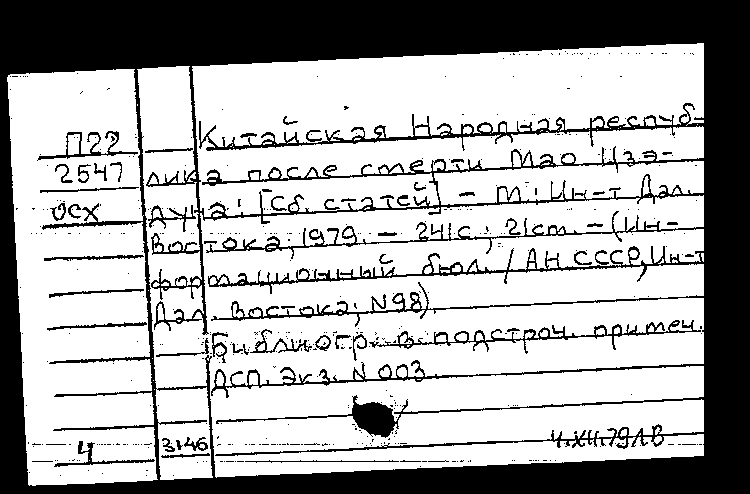 П22 Китайская Народная респуб-
2547 лика после смерти Мао Цзэ-
осх дуна: [Сб. статей] - М: Ин-т Дал.
Востока, 1979. - 241с.; 21см. - (Ин-
формационный бюл. / АН СССР, Ин-т
Дал. Востока; N98).
Библиогр. в подстроч. примеч.
ДСП. Экз. N 003.
Ч 3146 4.XII.79 ЛВ